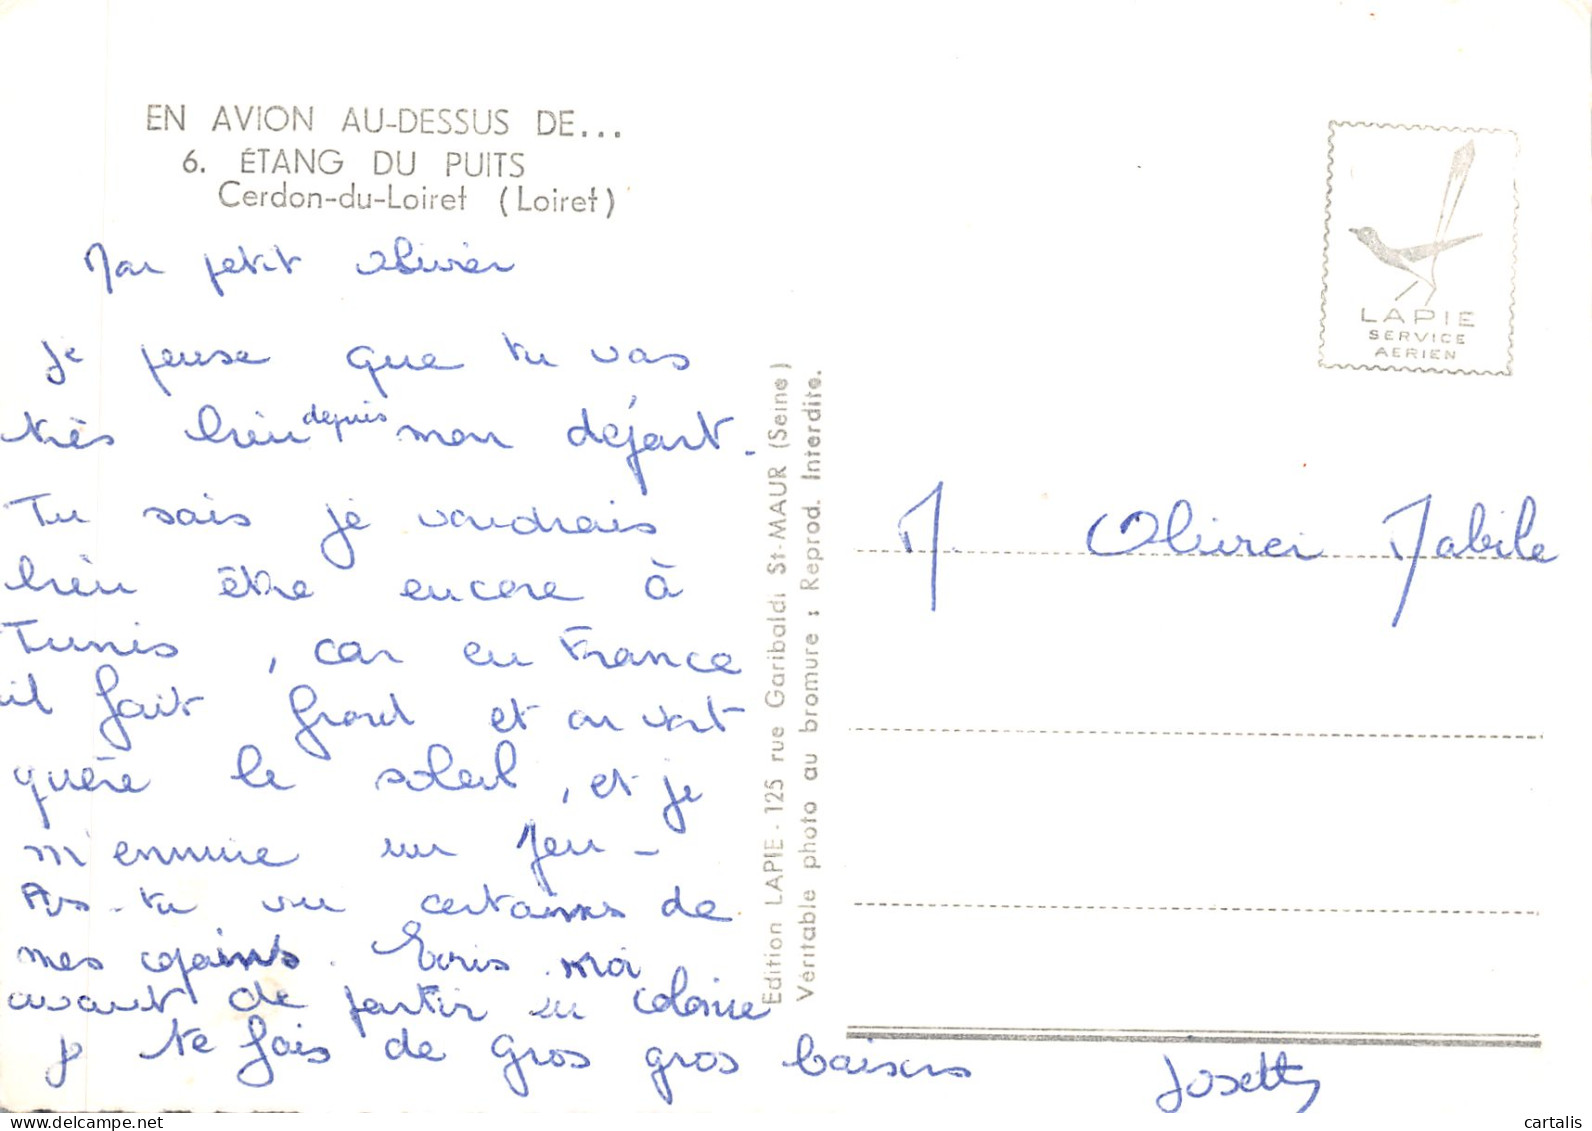 EN AVION AU-DESSUS DE...
6. ÉTANG DU PUITS
Cerdon-du-Loiret (Loiret)
Mon petit Olivier
Je pense que tu vas
très bien depuis mon départ.
Tu sais je voudrais
bien être encore à
Tunis, car en France
il fait froid et on voit
guère le soleil, et je
m'ennuie un peu -
As-tu vu certaines de
mes copains. Ecris moi
avant de partir en colonie
je te fais de gros gros baisers
Josette
Edition LAPIE - 125 rue Garibaldi St-MAUR (Seine)
Véritable photo au bromure : Reprod. Interdite.
LAPIE
SERVICE
AERIEN
M. Olivier Mabile
cartalis